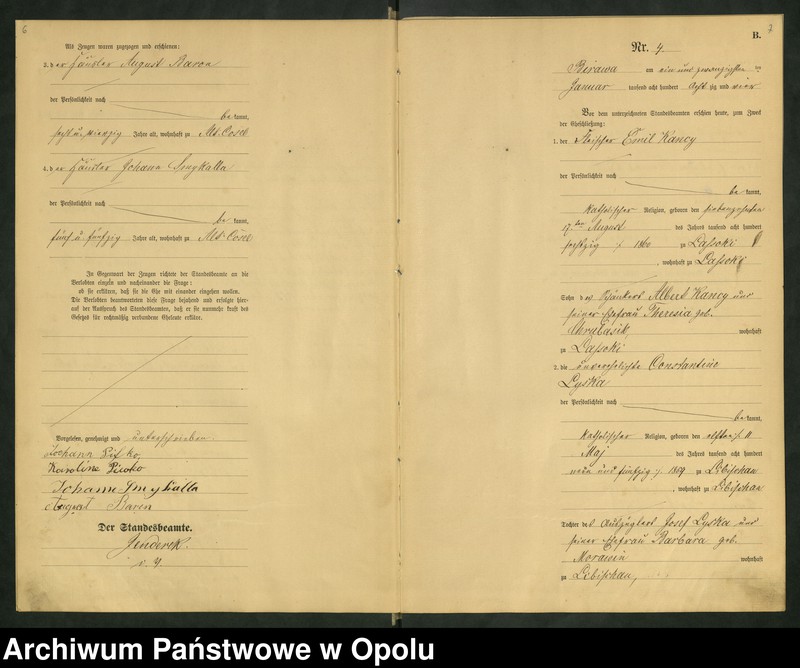 6
Als Zeugen waren zugezogen und erschienen:
3. der Häusler August Baron
der Persönlichkeit nach
bekannt,
sechs u. vierzig Jahre alt, wohnhaft zu Alt-Cosel
4. der Häusler Johann Smykalla
der Persönlichkeit nach
bekannt,
fünf u. fünfzig Jahre alt, wohnhaft zu Alt Cosel
In Gegenwart der Zeugen richtete der Standesbeamte an die
Verlobten einzeln und nacheinander die Frage:
ob sie erklären, daß sie die Ehe mit einander eingehen wollen.
Die Verlobten beantworteten diese Frage bejahend und erfolgte hier-
auf der Ausspruch des Standesbeamten, daß er sie nunmehr kraft des
Gesetzes für rechtmäßig verbundene Eheleute erkläre.
Vorgelesen, genehmigt und unterschrieben
Johann
Karoline
Johann Smykalla
August Baron
Der Standesbeamte.
Jenderek.
7
B.
Nr. 4
Birawa am ein und zwanzigsten ten
Januar tausend acht hundert Acht zig und vier
Vor dem unterzeichneten Standesbeamten erschien heute, zum Zweck
der Eheschließung:
1. der Fleischer Emil Kancy
der Persönlichkeit nach
bekannt,
katholischer Religion, geboren den siebenzehnten
17. ten August des Jahres tausend acht hundert
sechszig / 1860 zu Lassoki
, wohnhaft zu Lassoki
Sohn des Albert Kancy und
seiner Ehefrau Theresia geb.
wohnhaft
zu Lassoki
2. die unverehelichte Constantine
Lyska
der Persönlichkeit nach
bekannt,
katholischer Religion, geboren den elften / 11
Maj des Jahres tausend acht hundert
neun und fünfzig /. zu Libischau
, wohnhaft zu Libischau
Tochter des Auszüglers Josef Lyska und
seiner Ehefrau Barbara geb.
wohnhaft
zu Libischau,
Archiwum Państwowe w Opolu